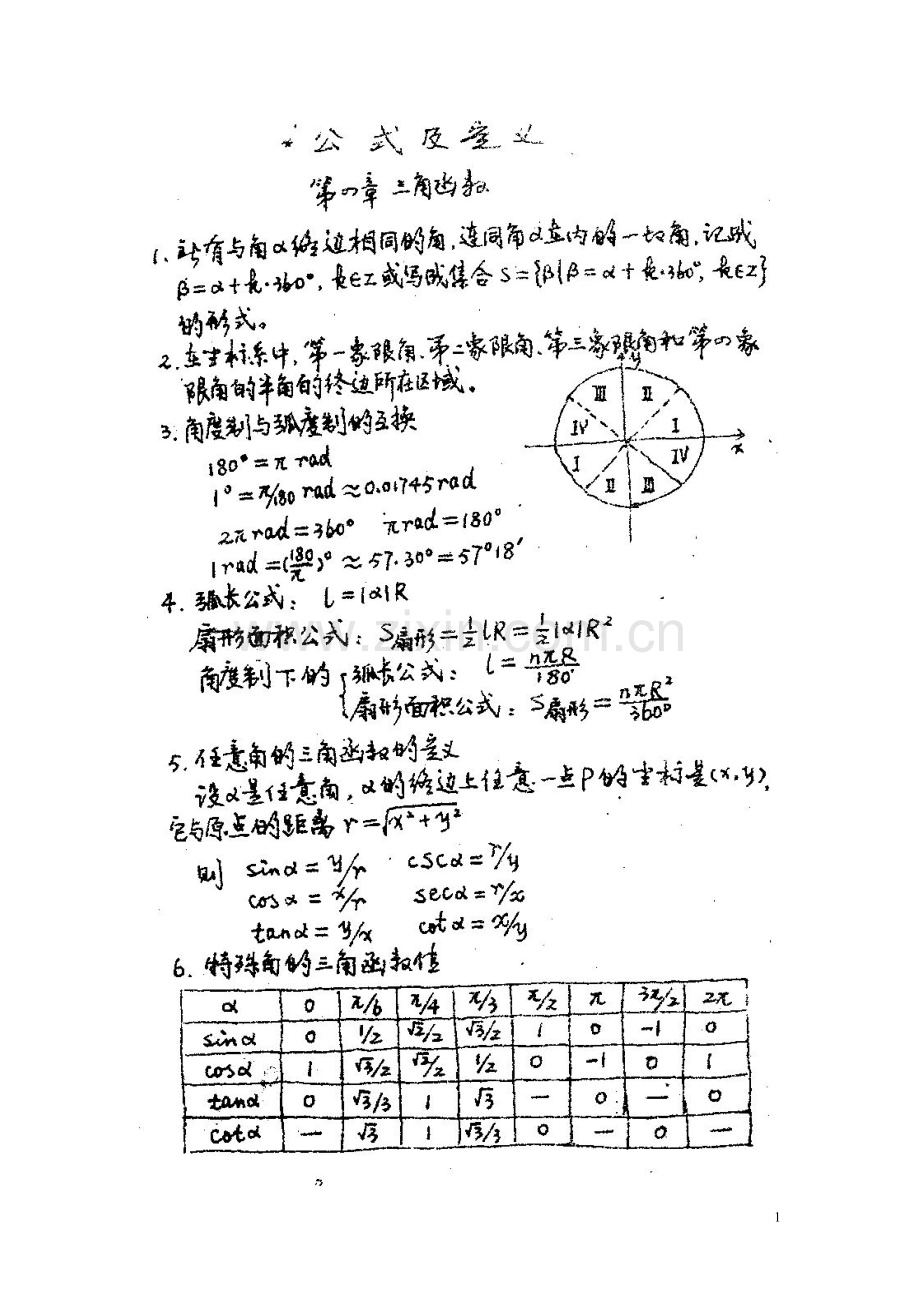 公式及定义
第四章 三角函数
1. 所有与角α终边相同的角,连同角α在内的一切角,记成
β=α+k·360°, k∈Z或写成集合S={β|β=α+k·360°, k∈Z}
的形式。
2. 在坐标系中,第一象限角、第二象限角、第三象限角和第四象
限角的半角的终边所在区域。
y
III II
IV I
x
I IV
II III
3. 角度制与弧度制的互换
180°=π rad
1°=π/180 rad≈0.01745rad
2πrad=360° πrad=180°
1rad=(180/π)°≈57.30°=57°18′
4. 弧长公式: l=|α|R
扇形面积公式: S扇形=½lR=½|α|R²
角度制下的 { 弧长公式: l=nπR/180°
扇形面积公式: S扇形=nπR²/360°
www.zixin.com.cn
5. 任意角的三角函数的定义
设α是任意角,α的终边上任意一点P的坐标是(x,y),
它与原点的距离r=√(x²+y²)
则 sinα=y/r cscα=r/y
cosα=x/r secα=r/x
tanα=y/x cotα=x/y
6. 特殊角的三角函数值
α 0 π/6 π/4 π/3 π/2 π 3π/2 2π
sinα 0 1/2 √2/2 √3/2 1 0 -1 0
cosα 1 √3/2 √2/2 1/2 0 -1 0 1
tanα 0 √3/3 1 √3 — 0 — 0
cotα — √3 1 √3/3 0 — 0 —
1